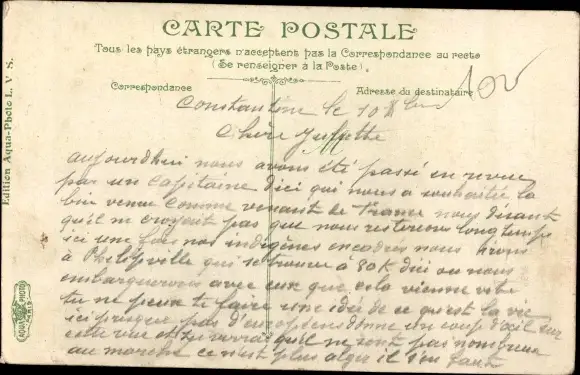 CARTE POSTALE
Tous les pays étrangers n'acceptent pas la Correspondance au recto
(Se renseigner à la Poste)
Correspondance
Adresse du destinataire
Constantine le 10 Xbre
Chère Juliette
aujourdhui nous avons été passé en revue
par un capitaine dici qui nous a souhaitée la
bien venue comme venant de France nous disant
qu'il ne croyait pas que nous resterions longtemps
ici une fois nos indigènes encadrés nous irons
à Philipville qui se trouve à 80K dici ou nous
embarquerons avec eux que cela vienne vite
tu ne peux te faire une idée de ce qu'est la vie
ici presque pas d'européens donne un coup d'œil sur
cette vue et tu verras qu'il ne sont pas nombreux
au marché ce n'est plus alger il s'en faut
Edition Aqua-Photo L. V. S.
AQUA PHOTO
PARIS